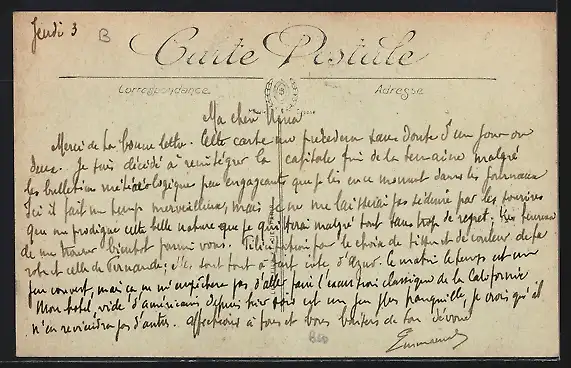 Jeudi 3
B
Carte Postale
Correspondance
Adresse
Ma chère
Merci de ta bonne lettre. Cette carte me précédera sans doute d'un jour ou
deux. Je suis décidé à réintégrer la capitale fin de la semaine malgré
les bulletins météorologiques peu engageants que je lis en ce moment dans les journaux
Ici il fait un temps merveilleux, mais je ne me laisserai pas séduire par les sourires
que me prodigue cette belle nature que je quitterai malgré tout sans trop de regret, très heureux
de me trouver bientôt parmi vous. pour le choix de tissu et de couleur de ta
robe et celle de Fernande; elles sont tout à fait côte d'Azur. Ce matin le temps est un
peu couvert, mais ça ne m'empêchera pas d'aller faire l'excursion classique de la Californie
Mon hôtel, vide d'américains depuis hier soir est un peu plus tranquille, je crois qu'il
n'en reviendra pas d'autres. Affections à tous et bons baisers de ton dévoué
Emmanuel